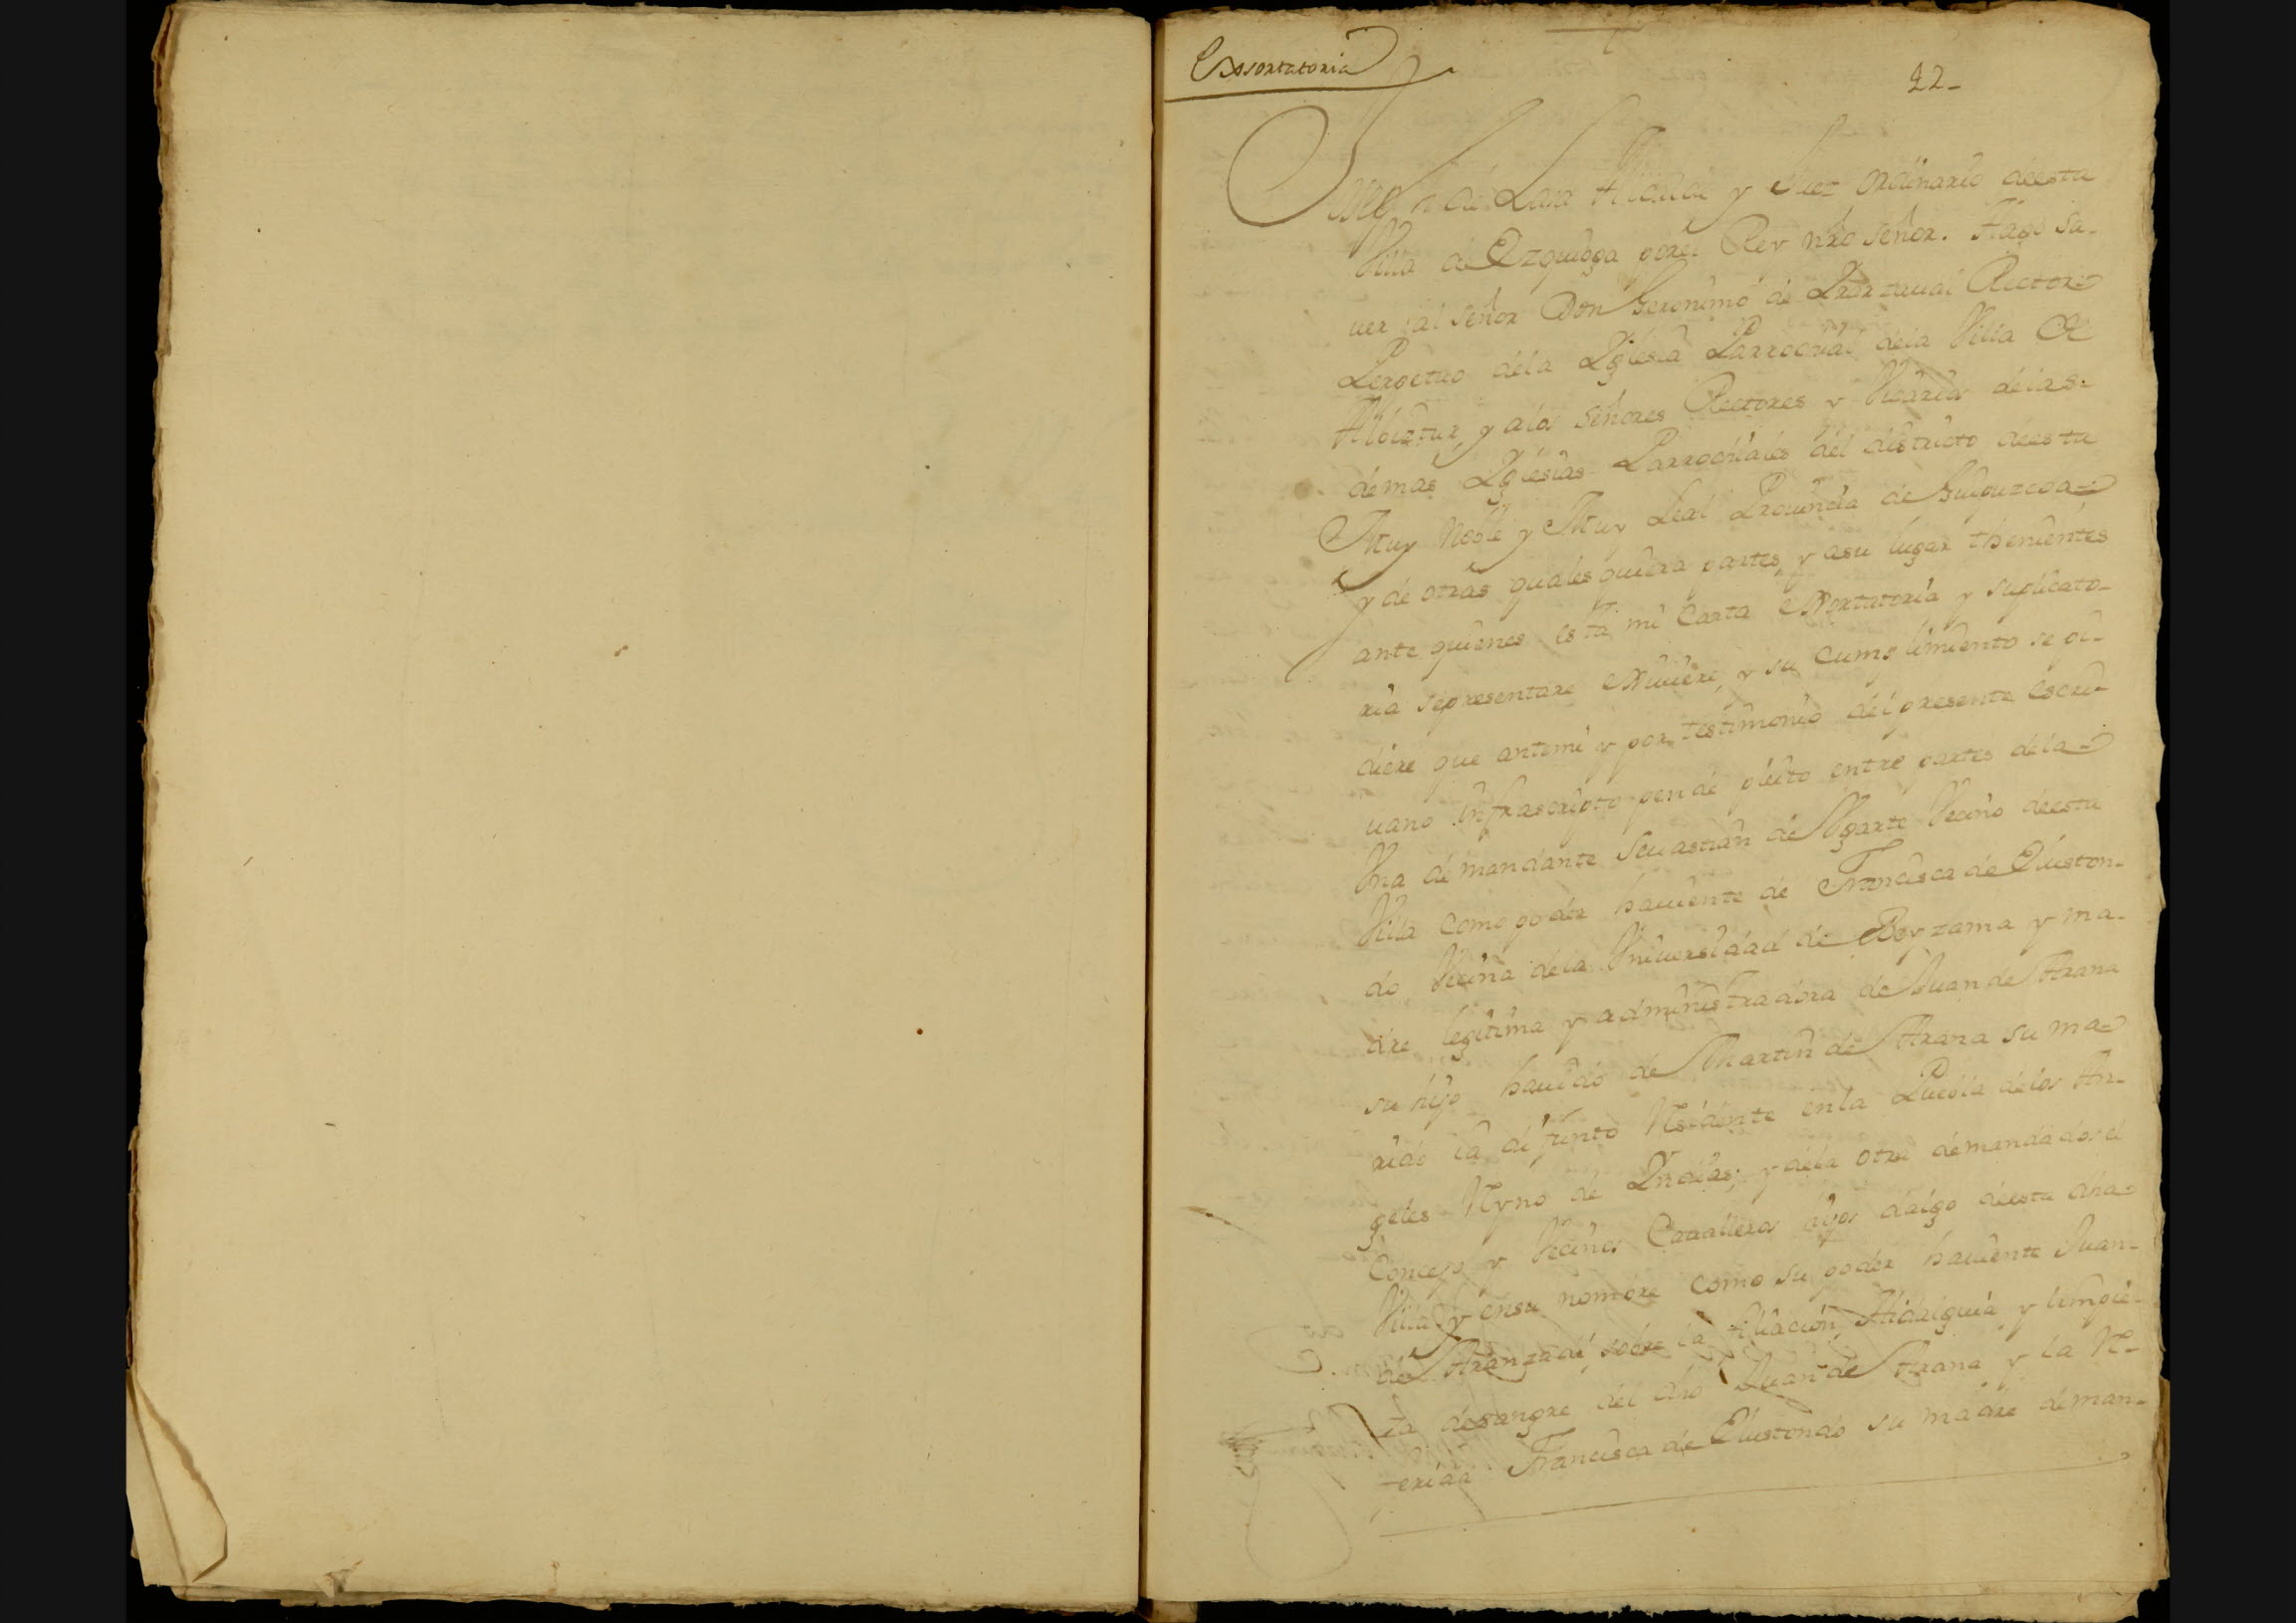 Exsortatoria
22-
de Lara Alcalde y Juez ordinario deesta
Villa de Ezquioga porel Rey nro señor. Hago sa-
uer al señor Don Geronimo de Yrarzaual Rector
Perpetuo dela Yglesia Parrochial dela Villa de
Albiztur, y alos señores Rectores y Vicarios delas-
demas Yglesias Parrochiales del districto deesta
Muy Noble y Muy Leal Prouincia de Guipuzcoa
y de otras qualesquiera partes, y asu lugar thenientes
ante quienes esta mi Carta exortatoria y suplicato-
ria sepresentare exsiuiere, y su cumplimiento se pi-
diere que antemi y por testimonio del presente escri-
uano infrascripto pende pleito entre partes dela
Vna demandante Seuastian de Vgarte Vecino deesta
Villa como poder hauiente de Francisca de Eliston-
do Vecina dela Vniuersidad de Beyzama y ma-
dre legitima y administradora de Juan de Arana
su hijo hauido de Martin de Arana su ma-
rido ia difunto Residente enla Puebla delos An-
geles Reyno de Yndias; y dela otra demandados el
Concejo y Vecinos Caualleros hijos dalgo deesta dha
Villa y ensu nombre como su poder hauiente Juan-
de Aranzadi, sobre la filiacion Hidalguia y limpie-
za desangre del dho Juan de Arana y la Re-
ferida Francisca de Elistondo su madre deman-